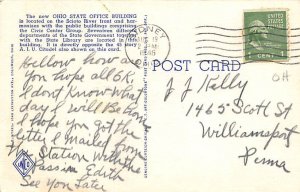 The new OHIO STATE OFFICE BUILDING
is located on the Scioto River front and har-
monizes with the public buildings comprising
the Civic Center Group. Seventeen different
departments of the State Government together with
the State Library are located in this
building. It is directly opposite the 45 story
A. I. U. Citadel also shown on this card.
SIDNEY
1945
OHIO
POST CARD
CENT
OH
Hellow how are
you hope all OK,
I dont Know what
day I will Be home
I hope you got the
letter I mailed from
The Station with the
Pass in Edith
See you Later
J J Kelly
1465 Scott St
Williamsport
Penna